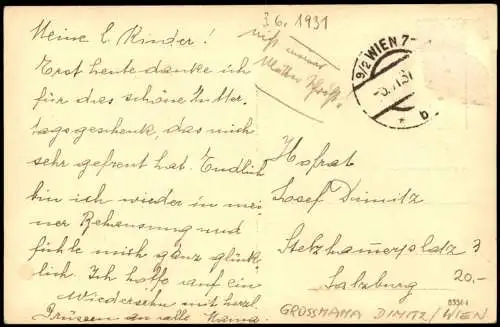 3.6. 1931
Meine l. Kinder!
Erst heute danke ich
für das schöne Mutter,
tagsgeschenk, das mich
sehr gefreut hat. Endlich
bin ich wieder in mei-
ner Behausung und
fühle mich ganz glück,
lich. Ich hoffe auf ein
Wiedersehn mit herzl.
Grüssen an alle Mama.
9/2 WIEN 7
b
*
Hofrat
Josef Dimitz
Stelzhamerplatz 3
Salzburg
20.-
GROSSMAMA DIMITZ/WIEN